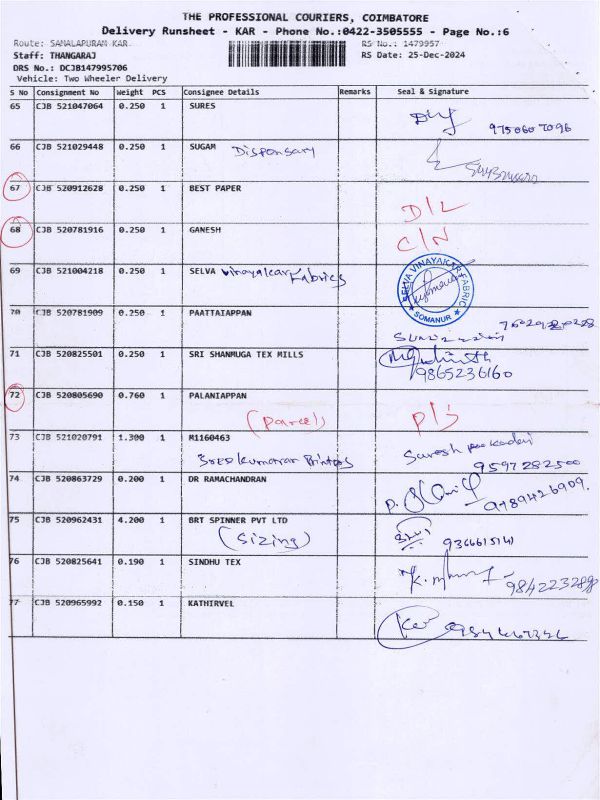 THE PROFESSIONAL COURIERS, COIMBATORE
Delivery Runsheet - KAR - Phone No.:0422-3505555 - Page No.:6
Route: SAMALAPURAM KAR RS No.: 1479957
Staff: THANGARAJ RS Date: 25-Dec-2024
DRS No.: DCJB147995706
Vehicle: Two Wheeler Delivery
S No Consignment No Weight PCS Consignee Details Remarks Seal & Signature
65 CJB 521047064 0.250 1 SURES
9750607096
66 CJB 521029448 0.250 1 SUGAM Dispensary
67 CJB 520912628 0.250 1 BEST PAPER D/L
68 CJB 520781916 0.250 1 GANESH C/N
69 CJB 521004218 0.250 1 SELVA Vinayakar Fabrics
SELVA VINAYAKAR FABRIC
SOMANUR
70 CJB 520781909 0.250 1 PAATTAIAPPAN
71 CJB 520825501 0.250 1 SRI SHANMUGA TEX MILLS
9865236160
72 CJB 520805690 0.760 1 PALANIAPPAN
(Parcel)
73 CJB 521020791 1.300 1 M1160463 Suresh
Sree Kumaran Printers 9597282500
74 CJB 520863729 0.200 1 DR RAMACHANDRAN
9789426909.
75 CJB 520962431 4.200 1 BRT SPINNER PVT LTD
(Sizing) 9366615141
76 CJB 520825641 0.190 1 SINDHU TEX
984223289
77 CJB 520965992 0.150 1 KATHIRVEL